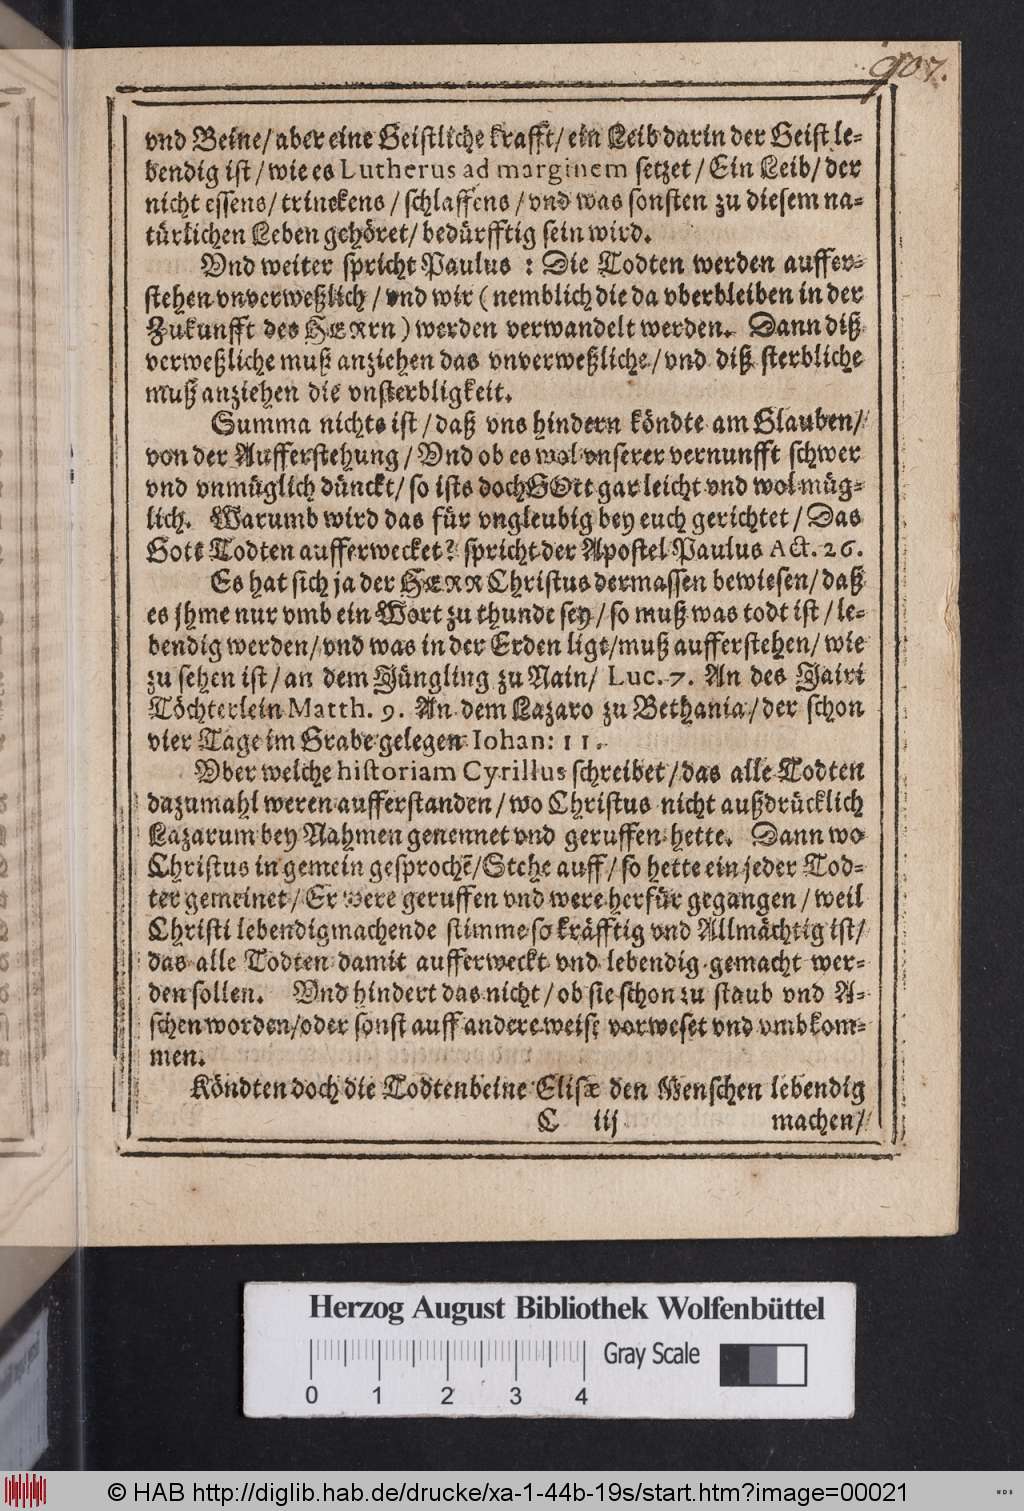 907.
vnd Beine/ aber eine Geistliche krafft/ ein Leib darin der Geist le-
bendig ist/ wie es Lutherus ad marginem setzet/ Ein Leib/ der
nicht essens/ trinckens/ schlaffens/ vnd was sonsten zu diesem na-
türlichen Leben gehöret/ bedürfftig sein wird.
Vnd weiter spricht Paulus : Die Todten werden auffer-
stehen vnverweßlich/ vnd wir (nemblich die da vberbleiben in der
Zukunfft des HERrn) werden verwandelt werden. Dann diß
verweßliche muß anziehen das vnverweßliche/ vnd diß sterbliche
muß anziehen die vnsterbligkeit.
Summa nichts ist/ daß vns hindern köndte am Glauben/
von der Aufferstehung/ Vnd ob es wol vnserer vernunfft schwer
vnd vnmüglich dünckt/ so ists doch GOtt gar leicht vnd wol müg-
lich. Warumb wird das für vngleubig bey euch gerichtet/ Das
Gott Todten aufferwecket? spricht der Apostel Paulus Act. 26.
Es hat sich ja der HERR Christus dermassen bewiesen/ daß
es jhme nur vmb ein Wort zu thunde sey/ so muß was todt ist/ le-
bendig werden/ vnd was in der Erden ligt/ muß aufferstehen/ wie
zu sehen ist/ an dem Jüngling zu Nain/ Luc. 7. An des Jairi
Töchterlein Matth. 9. An dem Lazaro zu Bethania/ der schon
vier Tage im Grabe gelegen Iohan: 11.
Vber welche historiam Cyrillus schreibet/ das alle Todten
dazumahl weren aufferstanden/ wo Christus nicht außdrücklich
Lazarum bey Nahmen genennet vnd geruffen hette. Dann wo
Christus in gemein gesprochẽ/ Stehe auff/ so hette ein jeder Tod-
ter gemeinet/ Er were geruffen vnd were herfür gegangen/ weil
Christi lebendigmachende stimme so kräfftig vnd Allmächtig ist/
das alle Todten damit aufferweckt vnd lebendig gemacht wer-
den sollen. Vnd hindert das nicht/ ob sie schon zu staub vnd A-
schen worden/ oder sonst auff andere weise vorweset vnd vmbkom-
men.
Köndten doch die Todtenbeine Elisæ den Menschen lebendig
C iij machen/
Herzog August Bibliothek Wolfenbüttel
Gray Scale
0 1 2 3 4
© HAB http://diglib.hab.de/drucke/xa-1-44b-19s/start.htm?image=00021